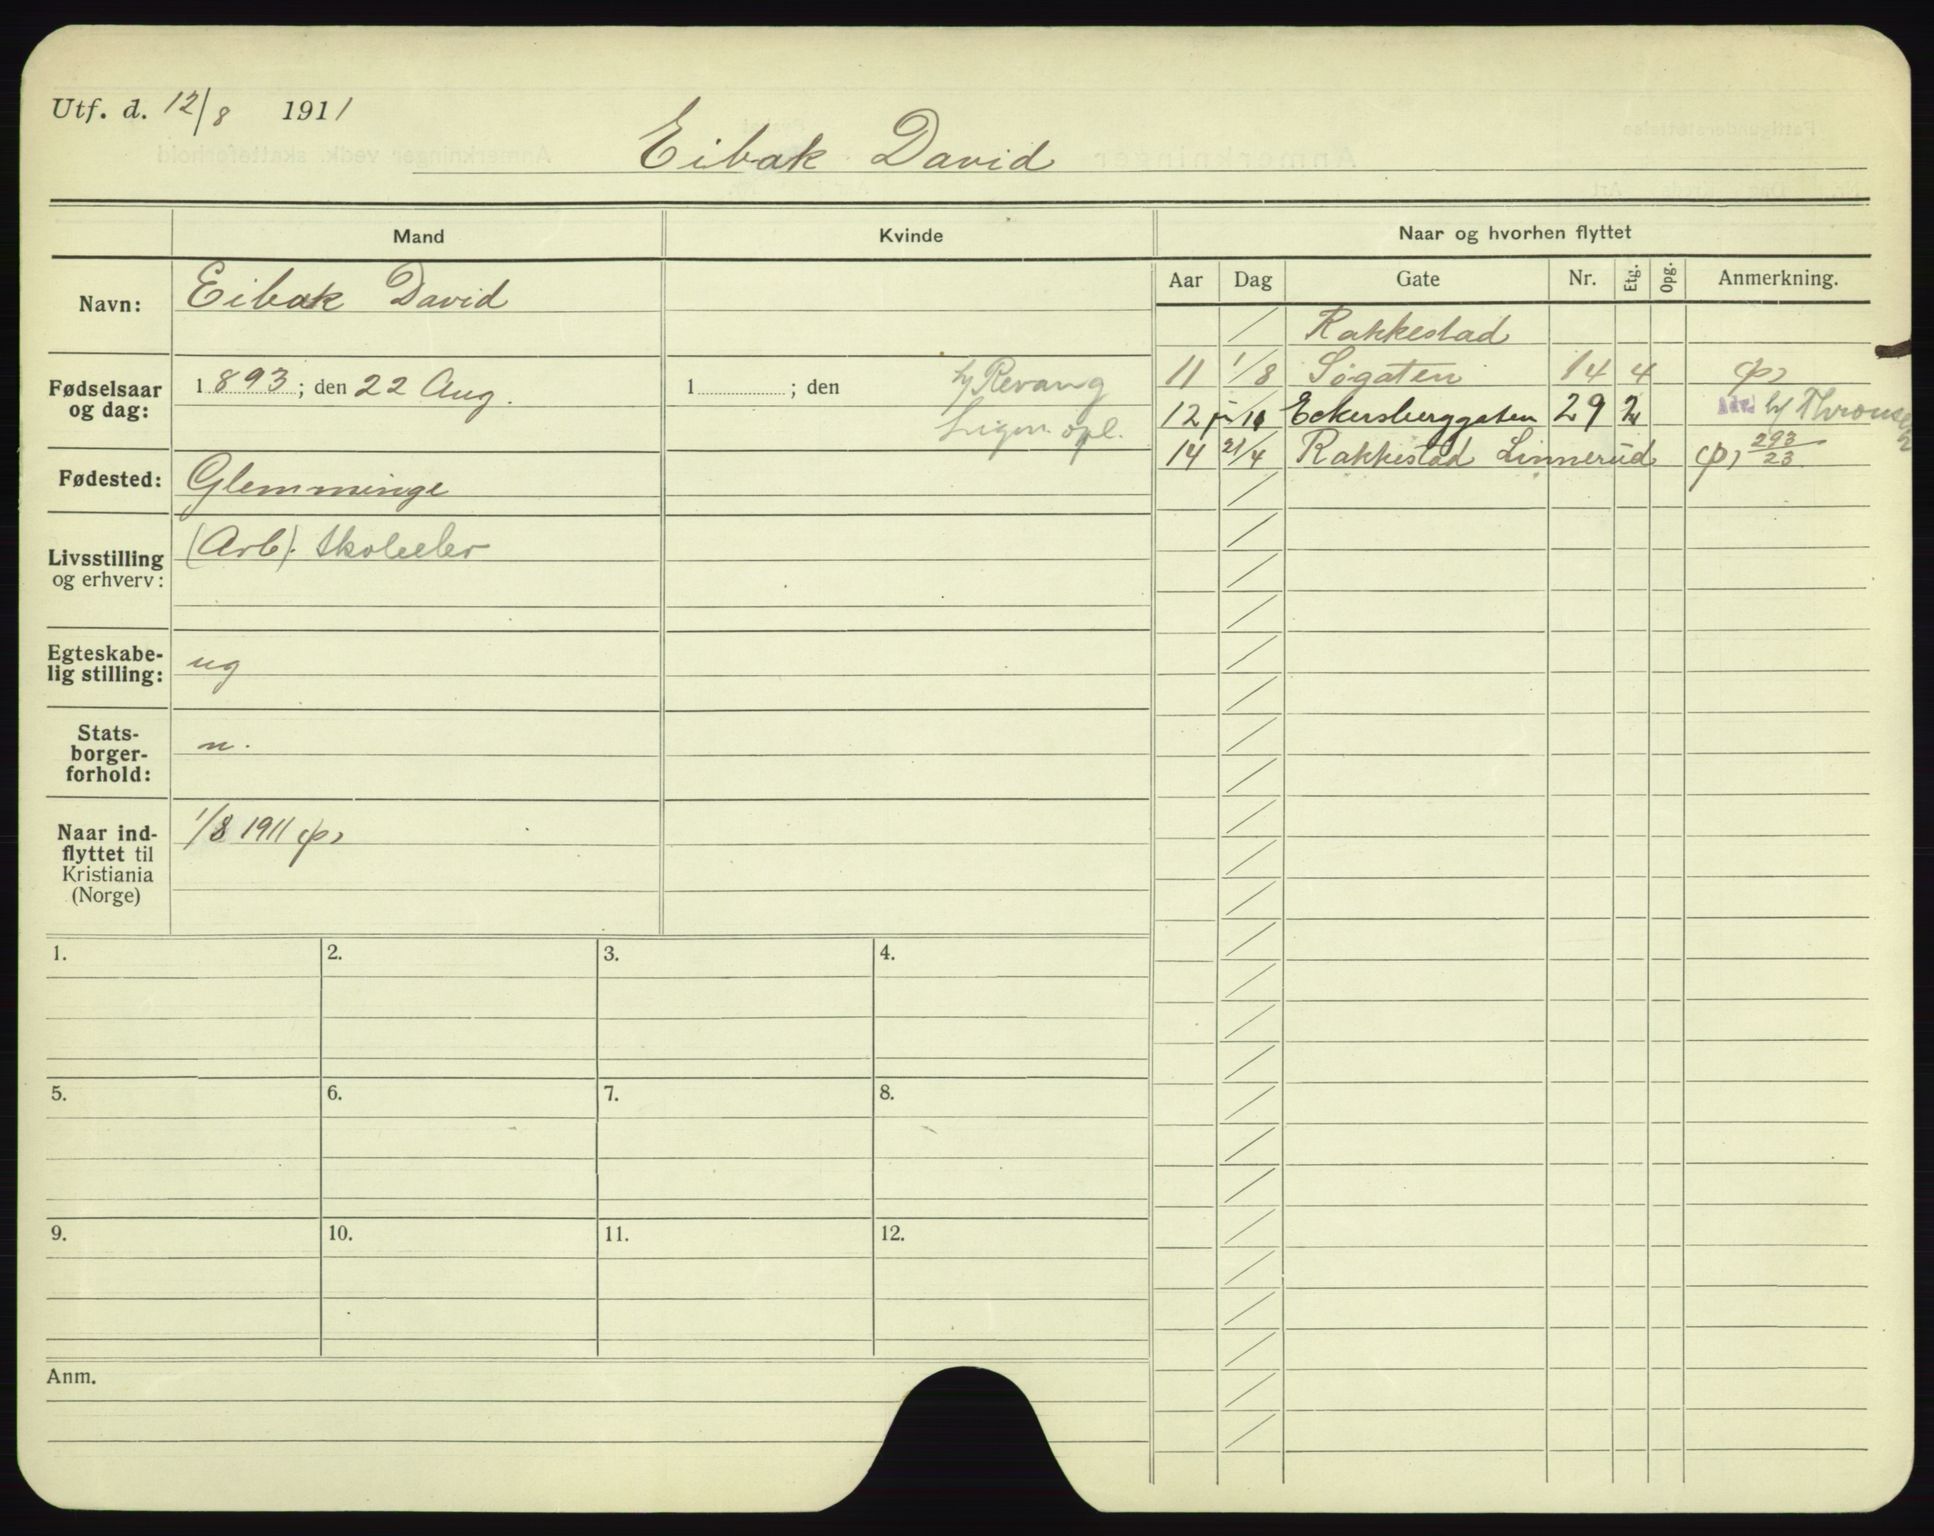 Utf. d. 12/8 1911
Eibak David
Mand
Kvinde
Naar og hvorhen flyttet
Navn:
Eibak David
Aar Dag Gate Nr. Etg. Opg. Anmerkning.
Rakkestad
Fødselsaar og dag:
1893; den 22 Aug.
1 ; den
h/ Revang
opl.
11 1/8 Søgaten 14 4
12 Eckersberggaten 29 2 Adv. h/
14 21/4 Rakkestad Linnerud 293/23
Fødested:
Glemminge
Livsstilling og erhverv:
(Arb). Skoleelev
Egteskabe-
lig stilling:
ug
Stats-
borger-
forhold:
n.
Naar ind-
flyttet til
Kristiania
(Norge)
1/8 1911
1. 2. 3. 4.
5. 6. 7. 8.
9. 10. 11. 12.
Anm.